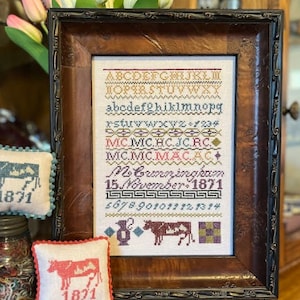 ABCDEFGHIJKLM
NOPQRSTUVWXY
abcdefghijklmnopq
rstuvwxyz 1234
MC,MC,HC,JC,RC
MC,MC,MAC,AC
M Cunningham
15 November 1871
5 6 7 8 9 10 11 12 13 14
1871
1871